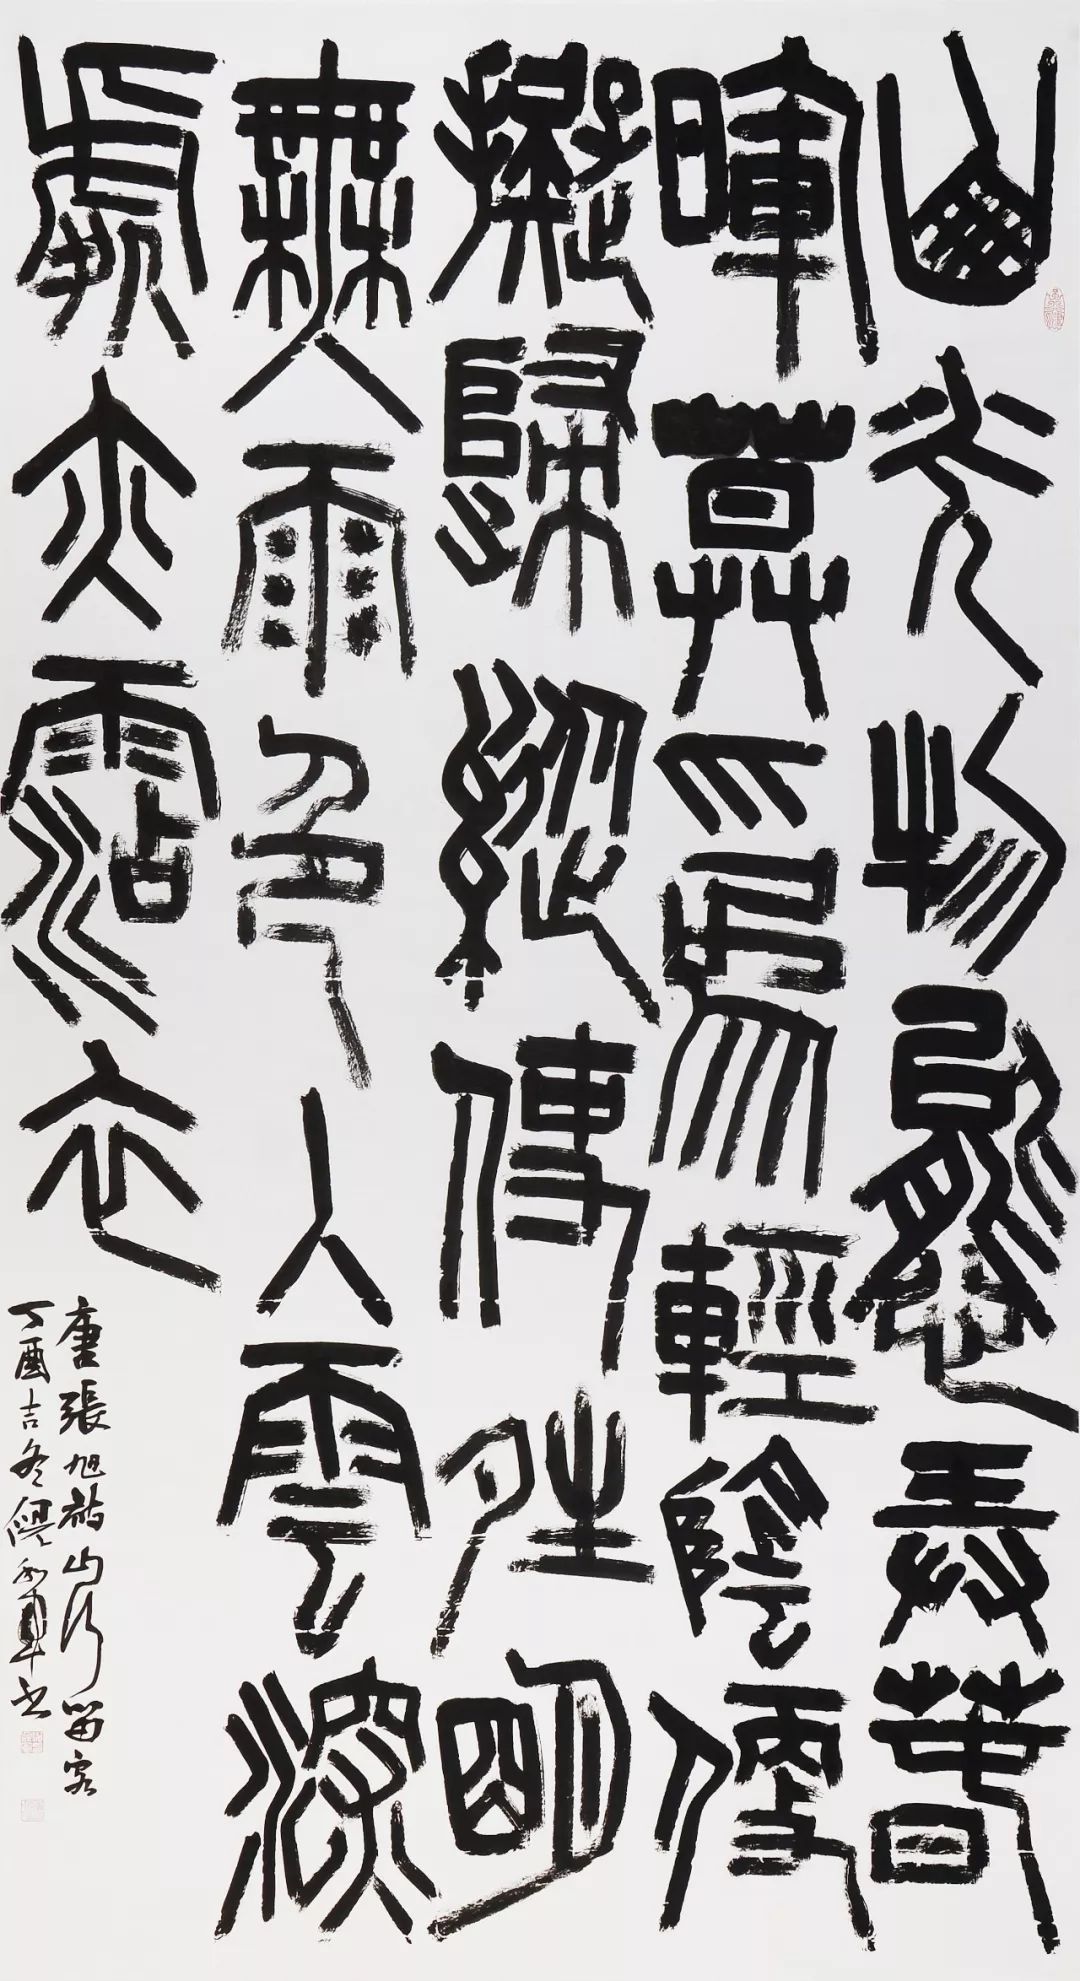 山光物態弄春
暉莫為輕陰便
擬歸縱使晴明
無雨色入雲深
處亦霑衣
唐張旭詩山行留客
丁酉吉冬倪和軍書